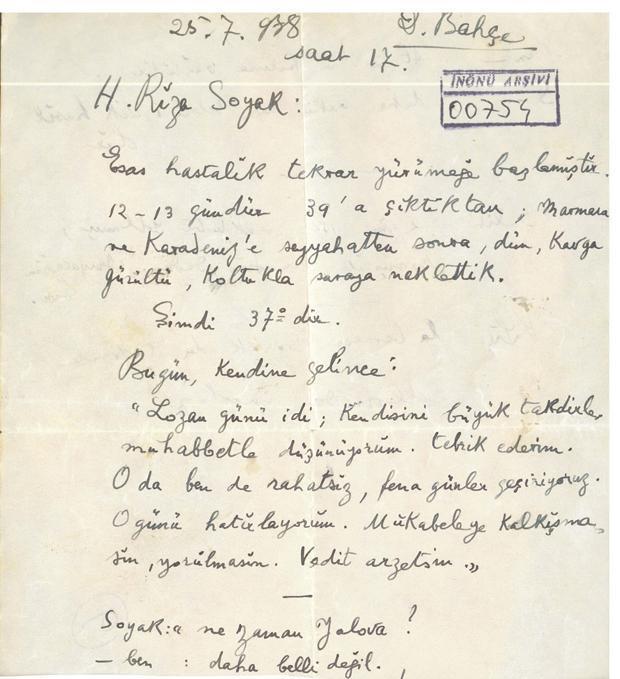 25.7.938
D. Bahçe
saat 17.
İNÖNÜ ARŞİVİ
00754
H. Rıza Soyak:
Esas hastalık tekrar yürümeğe başlamıştır.
12-13 gündür 39'a çıktıktan ; Marmara
ve Karadeniz'e seyyahatten sonra, dün, Kavga
gürültü, Koltukla saraya neklettik.
Şimdi 37° dir.
Bugün, Kendine gelince:
"Lozan günü idi; Kendisini büyük takdirler
muhabbetle düşünüyorum. tebrik ederim.
O da ben de rahatsız, fena günler geçiriyoruz.
O günü hatırlayorum. Mukabeleye kalkışma-
sın, yorulmasın. Vedit arzetsin."
Soyak: ne zaman Yalova?
- ben : daha belli değil.